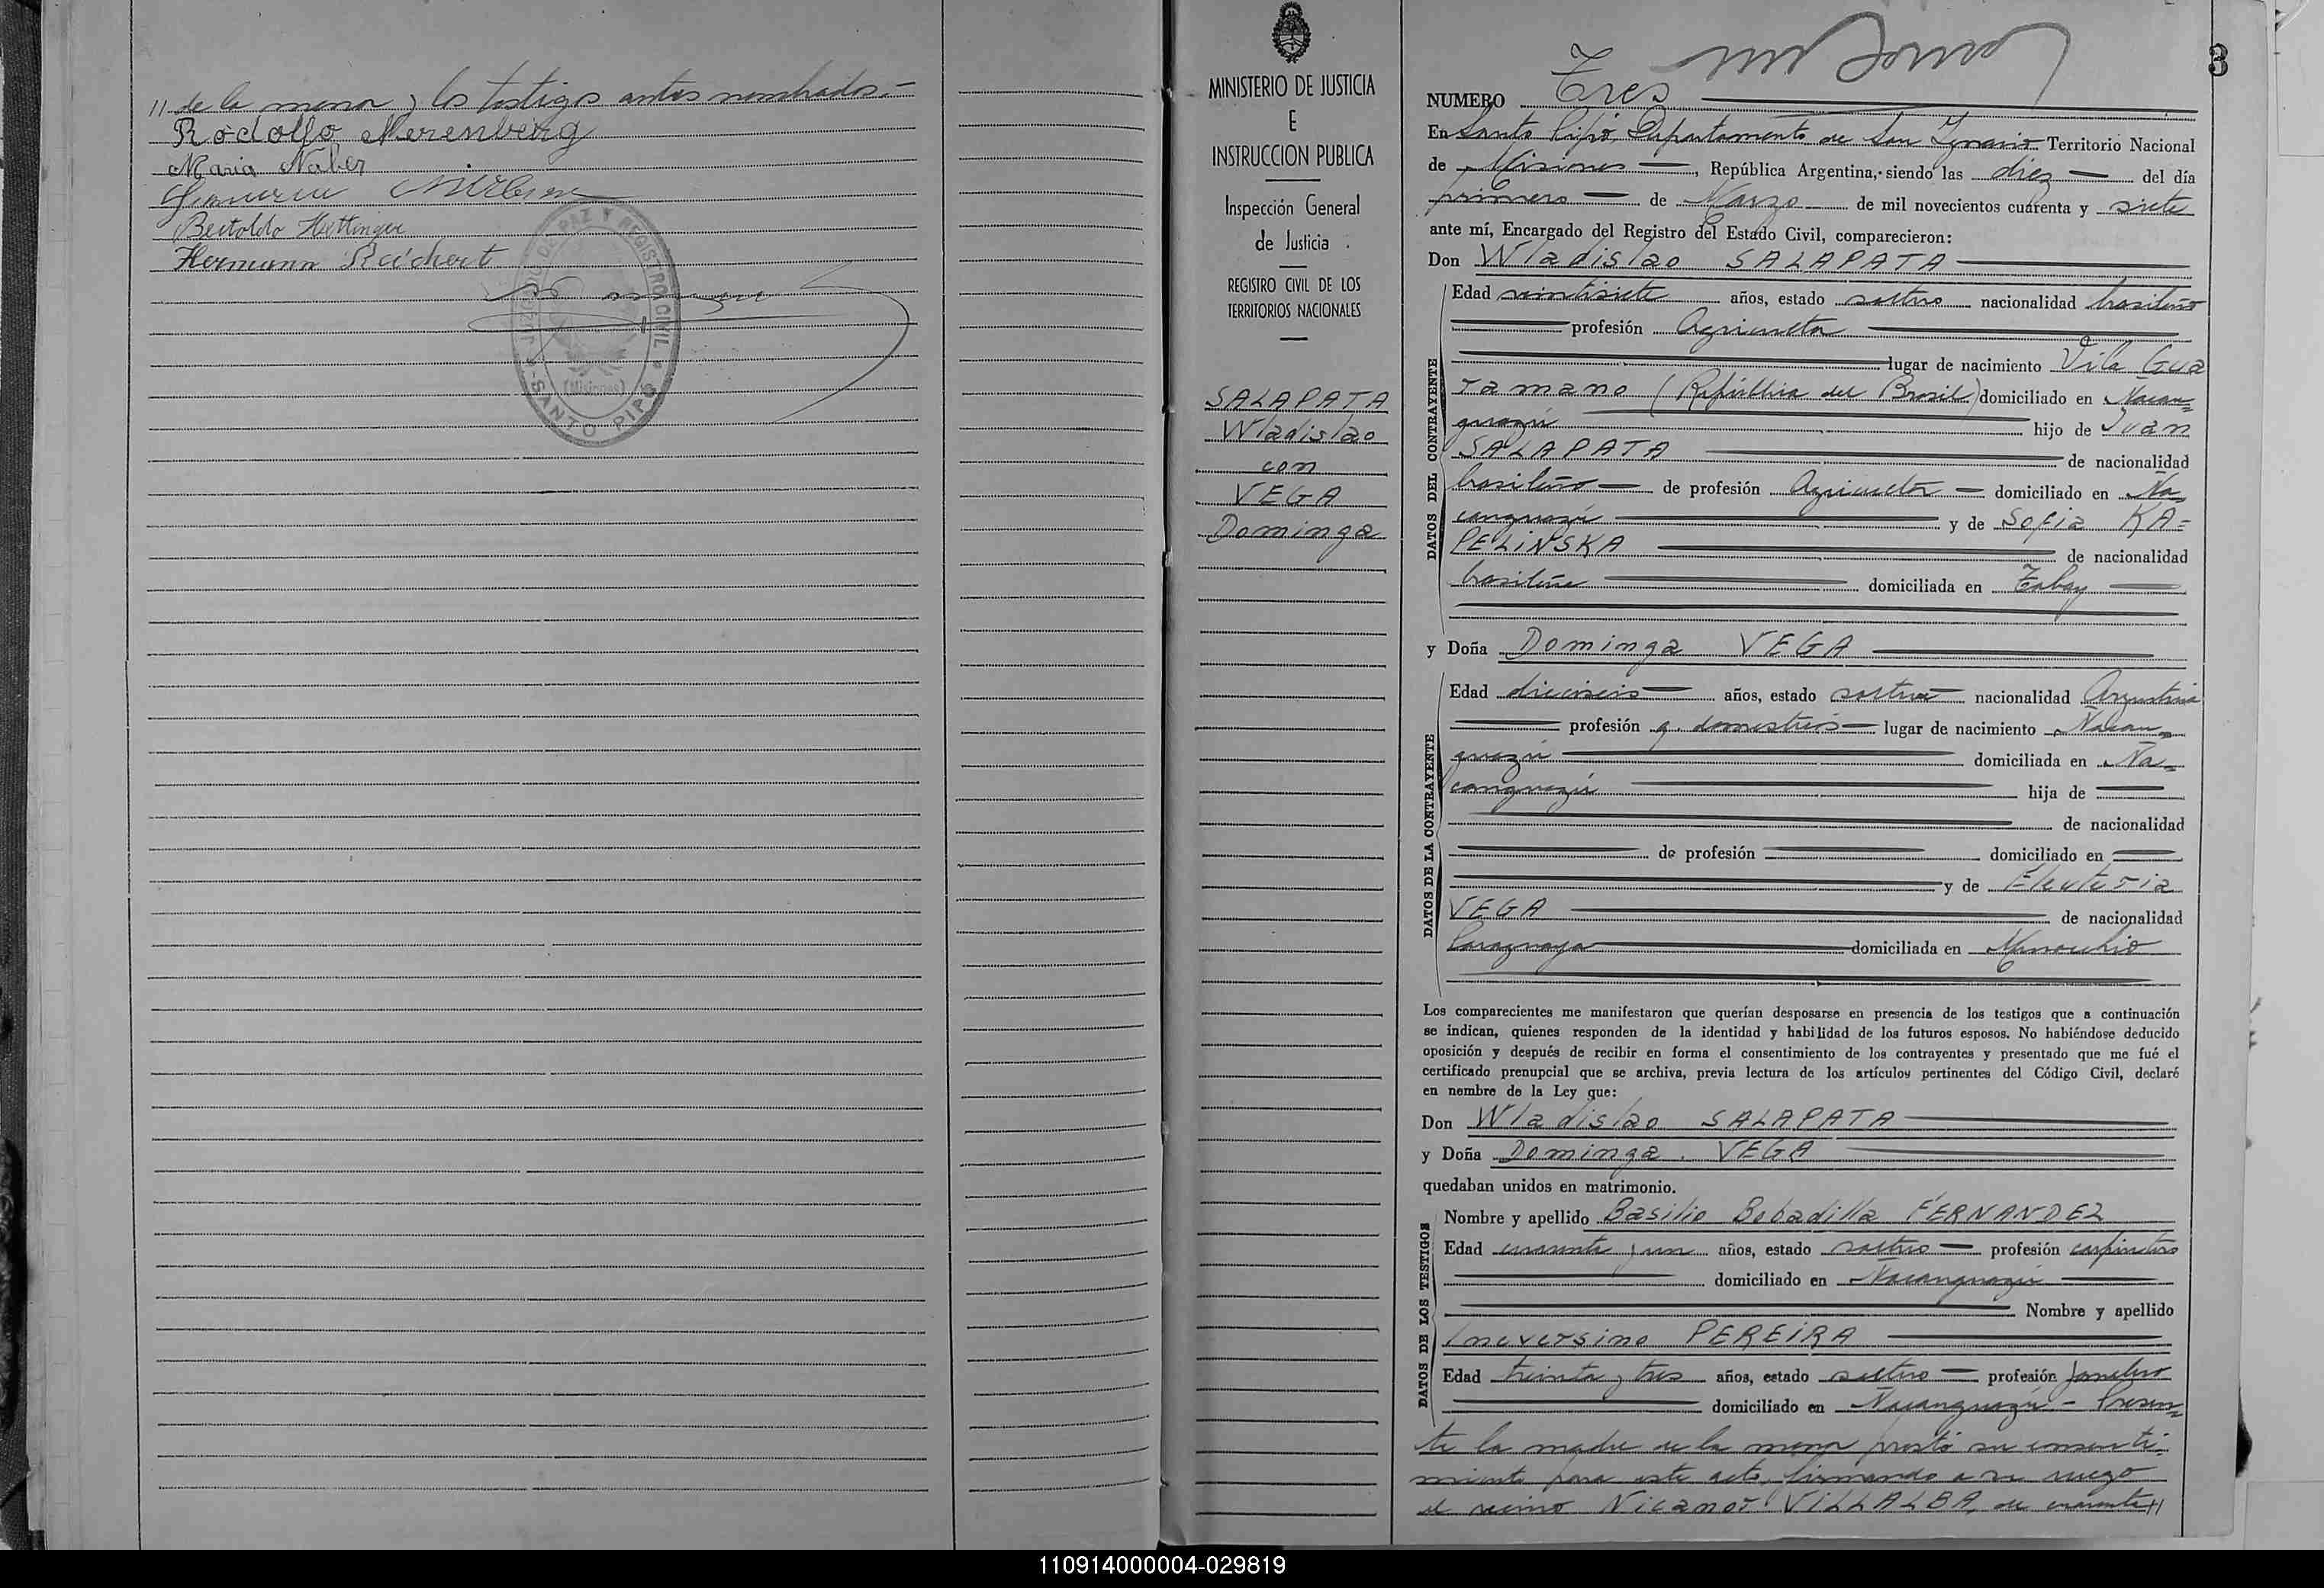 // de la menor y los testigos antes nombrados.-
Rodolfo Merenberg
Maria Naber
Bertoldo Hettinger
Hermann Reichert
JUZGADO DE PAZ Y REGISTRO CIVIL
(Misiones)
-SANTO PIPO
MINISTERIO DE JUSTICIA
E
INSTRUCCION PUBLICA
Inspección General
de Justicia
REGISTRO CIVIL DE LOS
TERRITORIOS NACIONALES
SALAPATA
Wladislao
con
VEGA
Dominga
3
NUMERO Tres
En Santo Pipó, Departamento de San Ignacio Territorio Nacional
de Misiones, República Argentina, siendo las diez del día
primero de Marzo de mil novecientos cuarenta y siete
ante mí, Encargado del Registro del Estado Civil, comparecieron:
Don Wladislao SALAPATA
DATOS DEL CONTRAYENTE
Edad veintisiete años, estado soltero nacionalidad brasileño
profesión Agricultor
lugar de nacimiento Vila Gua
ramano (República del Brasil) domiciliado en Ñacan=
guazú hijo de Juan
SALAPATA de nacionalidad
brasileño de profesión Agricultor domiciliado en Ña=
canguazú y de Sofia KA=
PELINSKA de nacionalidad
brasileña domiciliada en Tabay
y Doña Dominga VEGA
DATOS DE LA CONTRAYENTE
Edad dieciseis años, estado soltera nacionalidad Argentina
profesión q. domesticos lugar de nacimiento Ñacan=
guazú domiciliada en Ña=
canguazú hija de
de nacionalidad
de profesión domiciliado en
y de Eleuteria
VEGA de nacionalidad
Paraguaya domiciliada en
Los comparecientes me manifestaron que querían desposarse en presencia de los testigos que a continuación
se indican, quienes responden de la identidad y habilidad de los futuros esposos. No habiéndose deducido
oposición y después de recibir en forma el consentimiento de los contrayentes y presentado que me fué el
certificado prenupcial que se archiva, previa lectura de los artículos pertinentes del Código Civil, declaré
en nombre de la Ley que:
Don Wladislao SALAPATA
y Doña Dominga VEGA
quedaban unidos en matrimonio.
DATOS DE LOS TESTIGOS
Nombre y apellido Basilio Bobadilla FERNANDEZ
Edad cuarenta y un años, estado soltero profesión carpintero
domiciliado en Ñacanguazú
Nombre y apellido
Inoversino PEREIRA
Edad treinta y tres años, estado soltero profesión Jornalero
domiciliado en Ñacanguazú - Presen=
te la madre de la menor prestó su consenti-
miento para este acto, firmando a su ruego
el vecino Nicanor VILLALBA, de cuarenta //
110914000004-029819